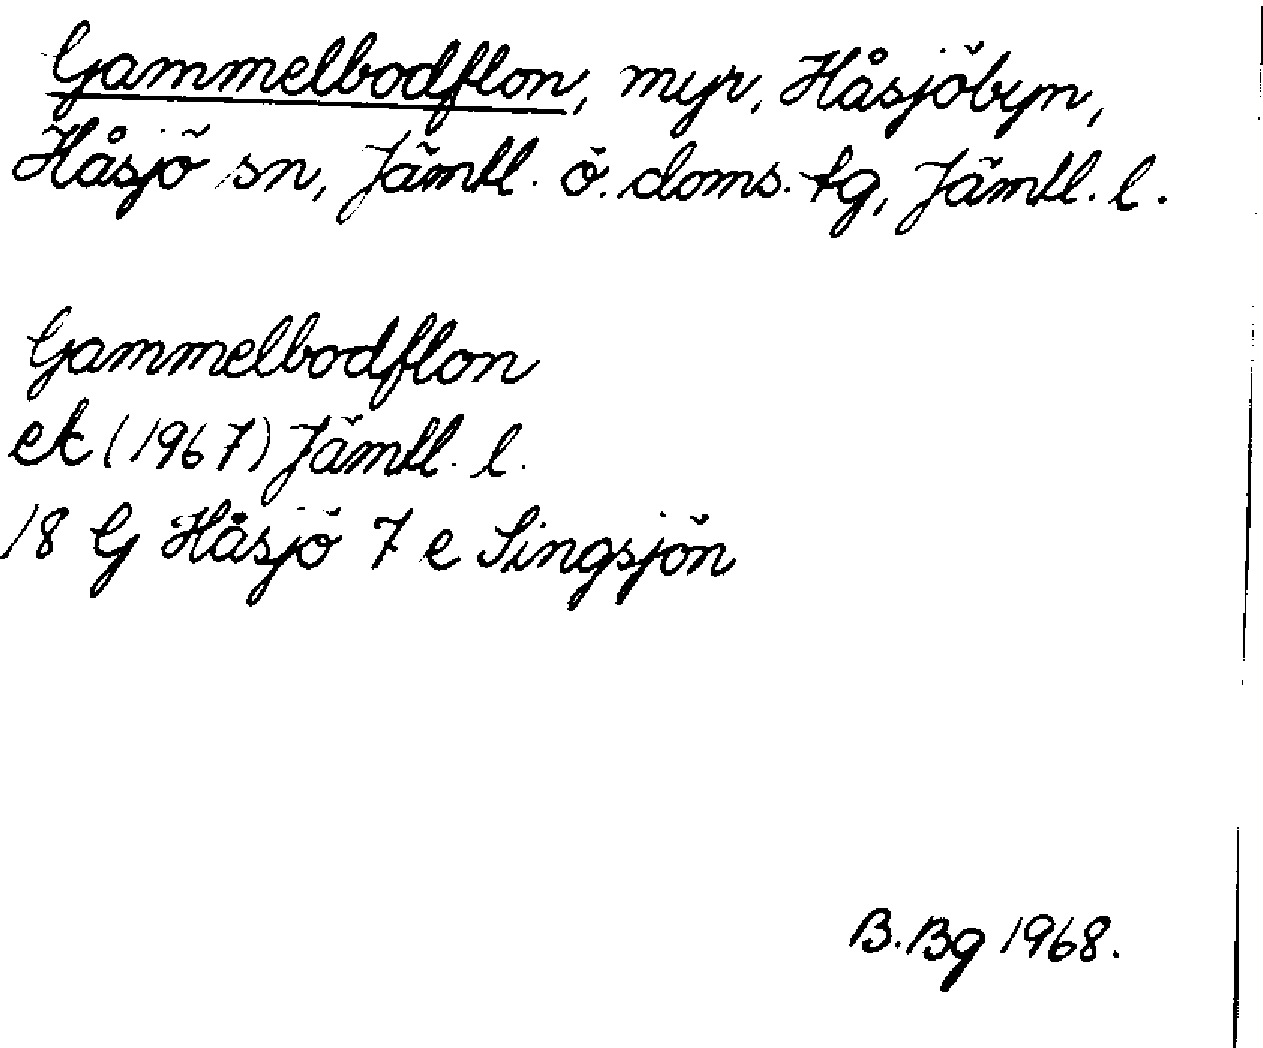 Gammelbodflon, myr, Håsjöbyn,
Håsjö sn, Jämtl. ö. doms. tg, Jämtl. l.
Gammelbodflon
ek (1967) Jämtl. l.
18 G Håsjö 7 e Singsjön
B. Bg 1968.